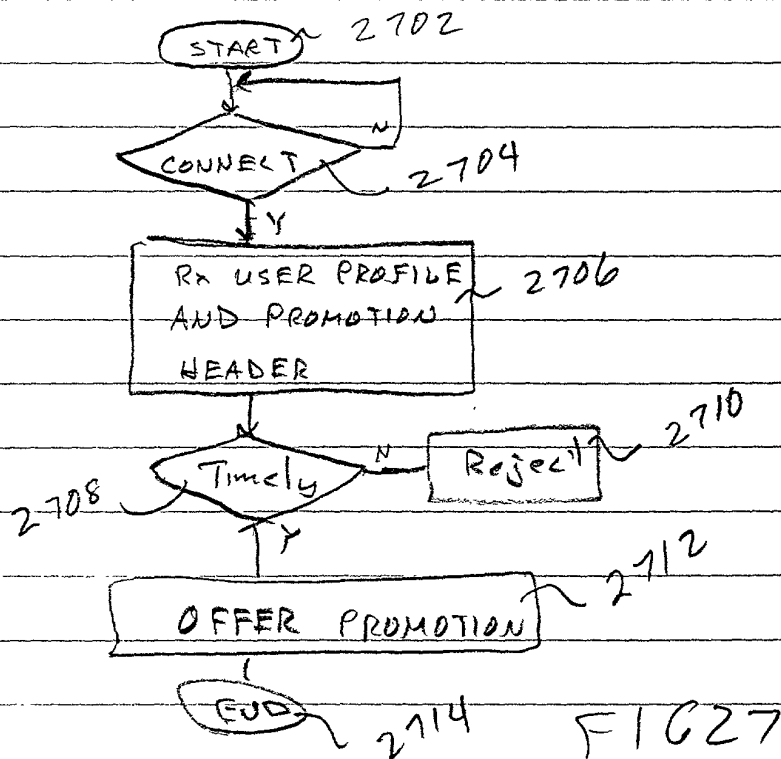 START 2702
N
CONNECT 2704
Y
Rx USER PROFILE
AND PROMOTION 2706
HEADER
2710
Timely N Reject
2708
Y
2712
OFFER PROMOTION
END 2714
FIG27